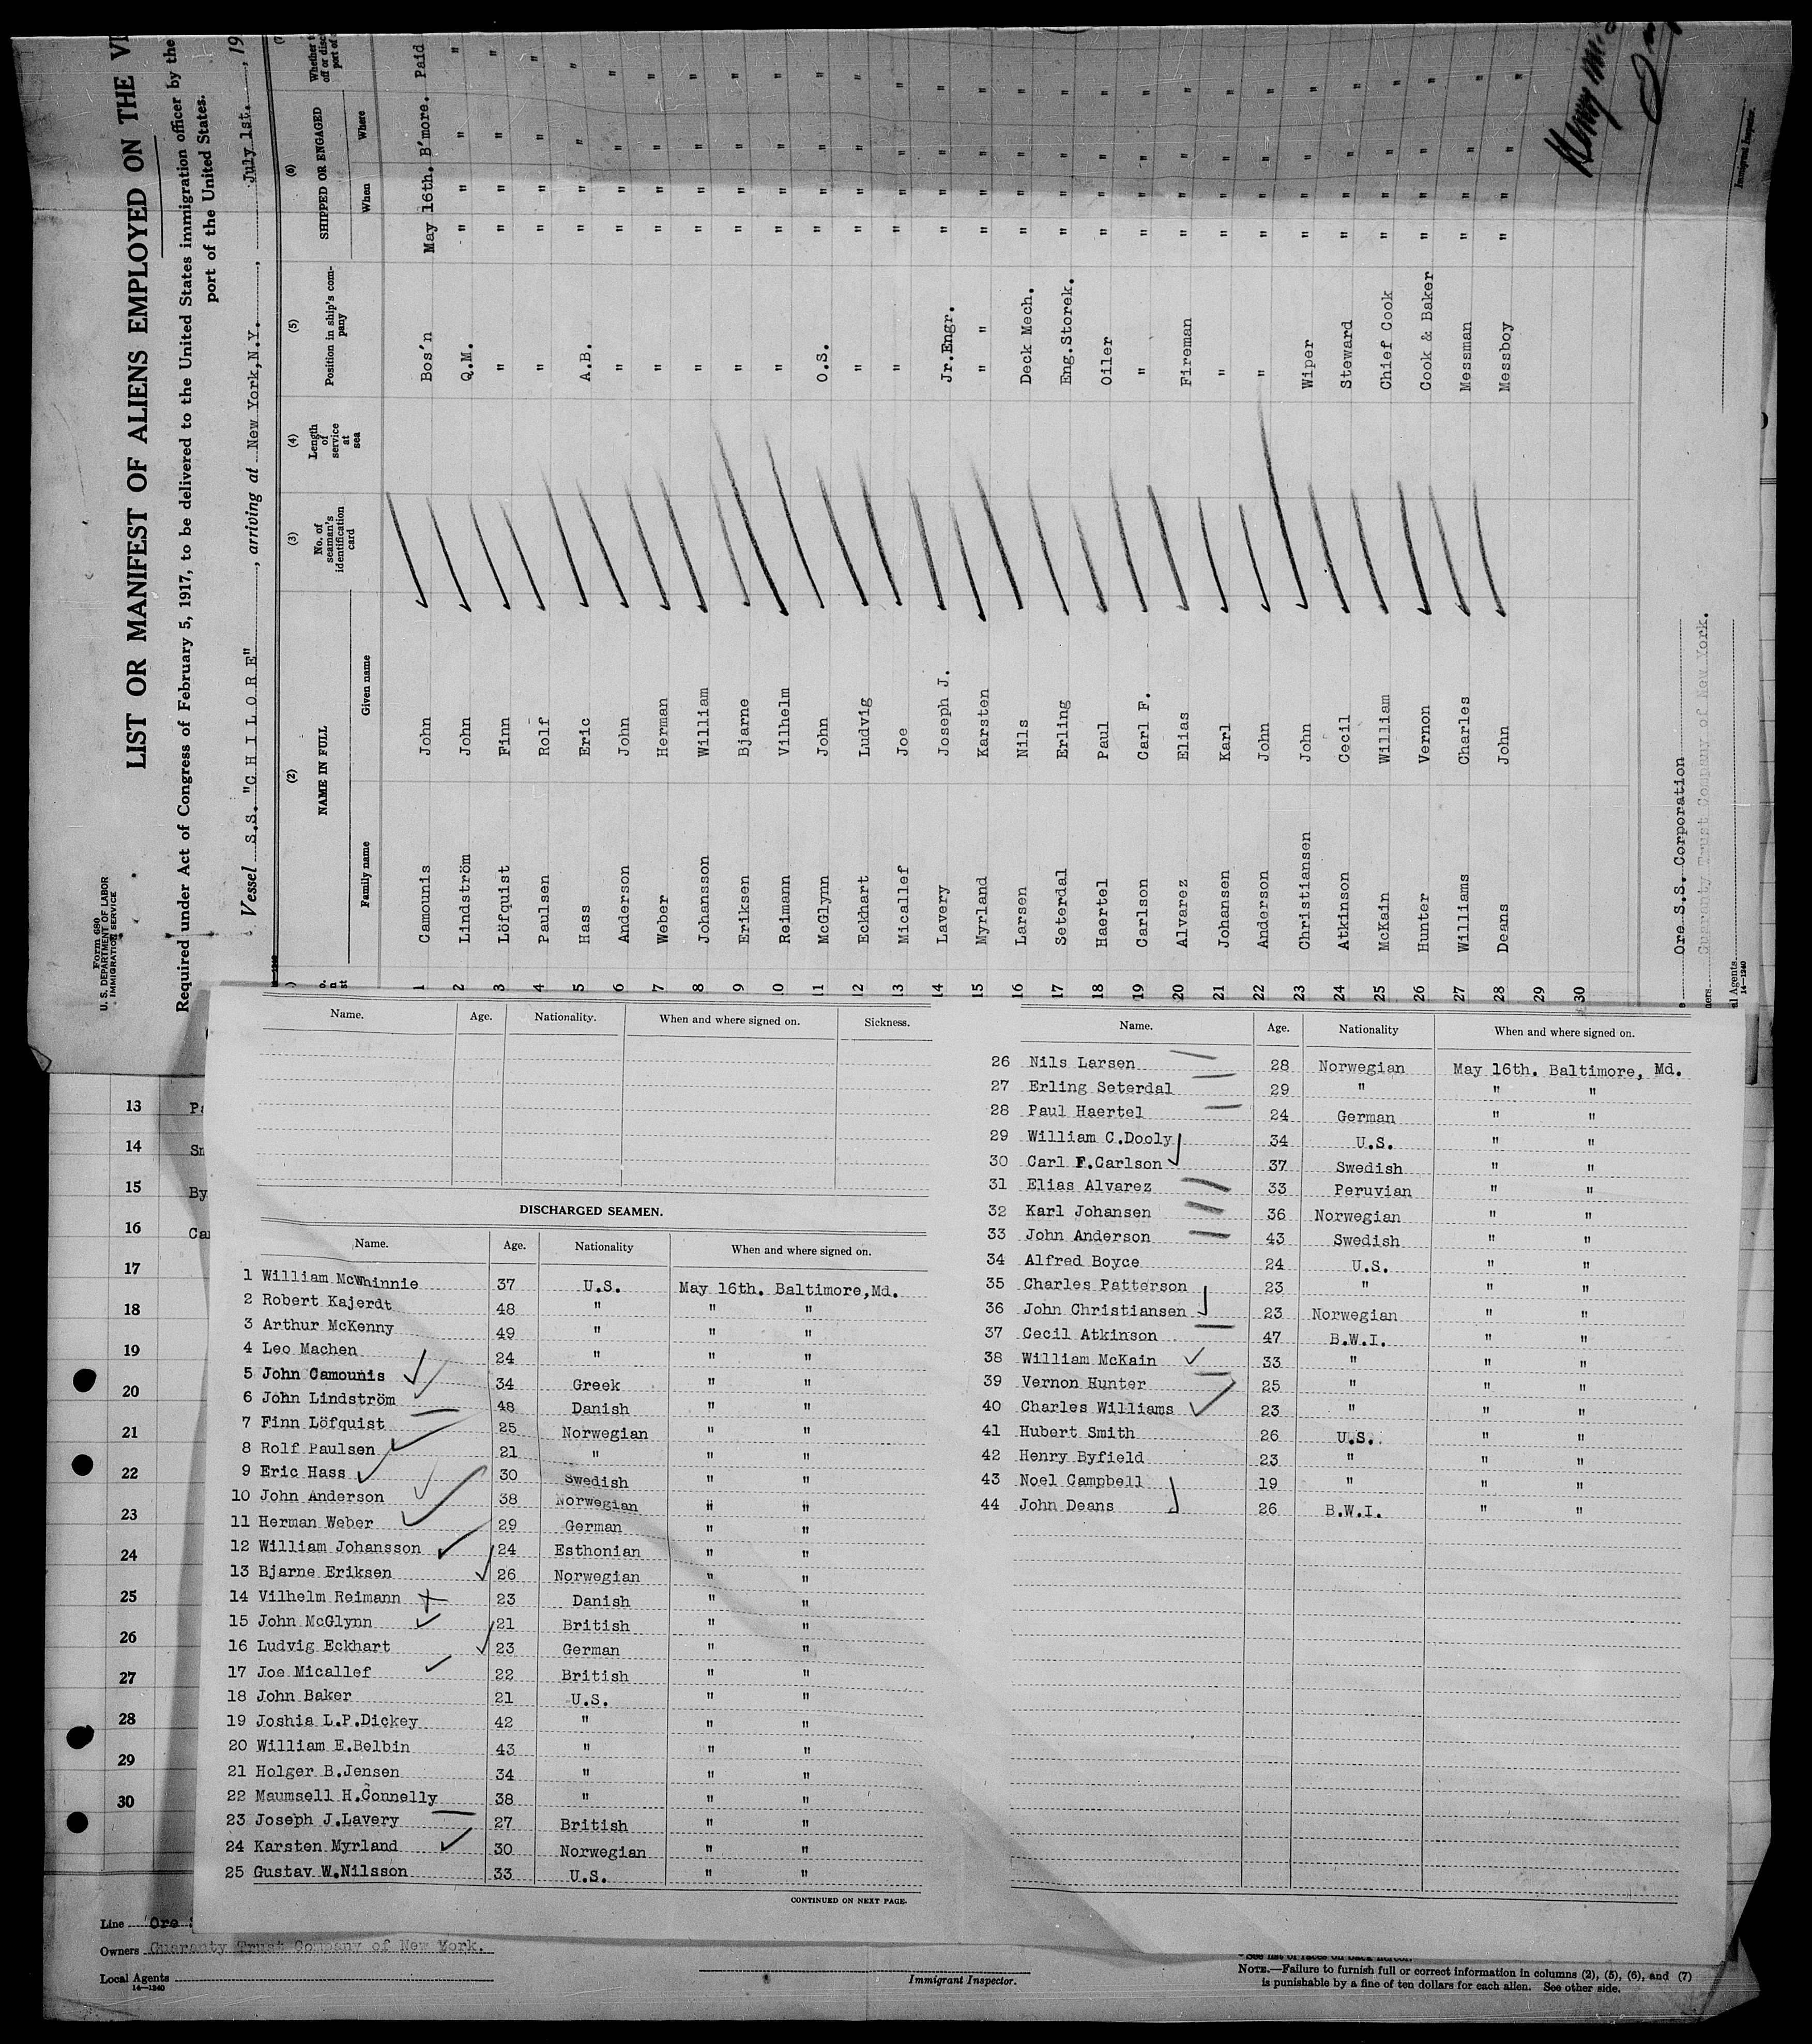 Form 680
U. S. DEPARTMENT OF LABOR
IMMIGRATION SERVICE
LIST OR MANIFEST OF ALIENS EMPLOYED ON THE
Required under Act of Congress of February 5, 1917, to be delivered to the United States immigration officer by the
port of the United States.
Vessel S.S. "CHILORE", arriving at New York, N.Y., July 1st., 19
(2) (3) (4) (5) (6)
NAME IN FULL No. of seaman's identification card Length of service at sea Position in ship's company SHIPPED OR ENGAGED
Family name Given name When Where
1 Camounis John Bos'n May 16th. B'more. Paid
2 Lindström John Q.M. " " " "
3 Löfquist Finn " " " " "
4 Paulsen Rolf " " " " "
5 Hass Eric A.B. " " " "
6 Anderson John " " " " "
7 Weber Herman " " " " "
8 Johansson William " " " " "
9 Eriksen Bjarne " " " " "
10 Reimann Vilhelm " " " " "
11 McGlynn John O.S. " " " "
12 Eckhart Ludvig " " " " "
13 Micallef Joe " " " " "
14 Lavery Joseph J. Jr.Engr. " " " "
15 Myrland Karsten " " " " " "
16 Larsen Nils Deck Mech. " " " "
17 Seterdal Erling Eng.Storek. " " " "
18 Haertel Paul Oiler " " " "
19 Carlson Carl F. " " " " "
20 Alvarez Elias Fireman " " " "
21 Johansen Karl " " " " "
22 Anderson John " " " " "
23 Christiansen John Wiper " " " "
24 Atkinson Cecil Steward " " " "
25 McKain William Chief Cook " " " "
26 Hunter Vernon Cook & Baker " " " "
27 Williams Charles Messman " " " "
28 Deans John Messboy " " " "
29
30
Ore S.S. Corporation
Guaranty Trust Company of New York.
Agents
14—1240
Immigrant Inspector.
Name. Age. Nationality. When and where signed on. Sickness.
DISCHARGED SEAMEN.
Name. Age. Nationality When and where signed on.
1 William McWhinnie 37 U.S. May 16th. Baltimore,Md.
2 Robert Kajerdt 48 " " "
3 Arthur McKenny 49 " " "
4 Leo Machen 24 " " "
5 John Camounis 34 Greek " "
6 John Lindström 48 Danish " "
7 Finn Löfquist 25 Norwegian " "
8 Rolf Paulsen 21 " " "
9 Eric Hass 30 Swedish " "
10 John Anderson 38 Norwegian " "
11 Herman Weber 29 German " "
12 William Johansson 24 Esthonian " "
13 Bjarne Eriksen 26 Norwegian " "
14 Vilhelm Reimann 23 Danish " "
15 John McGlynn 21 British " "
16 Ludvig Eckhart 23 German " "
17 Joe Micallef 22 British " "
18 John Baker 21 U.S. " "
19 Joshia L.P.Dickey 42 " " "
20 William E.Belbin 43 " " "
21 Holger B.Jensen 34 " " "
22 Maumsell H.Connelly 38 " " "
23 Joseph J.Lavery 27 British " "
24 Karsten Myrland 30 Norwegian " "
25 Gustav W.Nilsson 33 U.S. " "
CONTINUED ON NEXT PAGE.
Name. Age. Nationality When and where signed on.
26 Nils Larsen 28 Norwegian May 16th. Baltimore, Md.
27 Erling Seterdal 29 " " "
28 Paul Haertel 24 German " "
29 William C.Dooly 34 U.S. " "
30 Carl F.Carlson 37 Swedish " "
31 Elias Alvarez 33 Peruvian " "
32 Karl Johansen 36 Norwegian " "
33 John Anderson 43 Swedish " "
34 Alfred Boyce 24 U.S. " "
35 Charles Patterson 23 " " "
36 John Christiansen 23 Norwegian " "
37 Cecil Atkinson 47 B.W.I. " "
38 William McKain 33 " " "
39 Vernon Hunter 25 " " "
40 Charles Williams 23 " " "
41 Hubert Smith 26 U.S. " "
42 Henry Byfield 23 " " "
43 Noel Campbell 19 " " "
44 John Deans 26 B.W.I. " "
13
14
15 By
16
17
18
19
20
21
22
23
24
25
26
27
28
29
30
Line Ore
Owners Guaranty Trust Company of New York.
Local Agents
14—1240
Immigrant Inspector.
NOTE.—Failure to furnish full or correct information in columns (2), (5), (6), and (7)
is punishable by a fine of ten dollars for each alien. See other side.